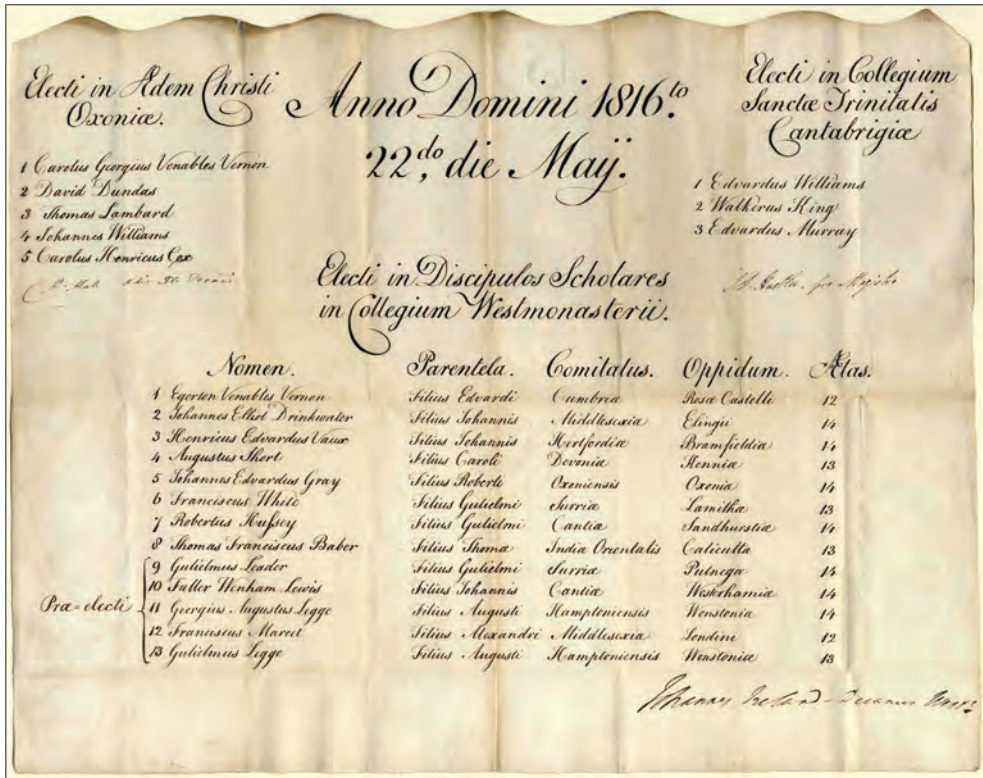 Electi in Ædem Christi
Oxoniæ.
1 Carolus Georgius Venables Vernon
2 David Dundas
3 Thomas Lambard
4 Johannes Williams
5 Carolus Henricus Cox
Anno Domini 1816.to
22.do die Maÿ.
Electi in Collegium
Sanctæ Trinitatis
Cantabrigiæ
1 Edvardus Williams
2 Walkerus King
3 Edvardus Murray
Electi in Discipulos Scholares
in Collegium Westmonasterii.
Nomen. Parentela. Comitatus. Oppidum. Ætas.
1 Egerton Venables Vernon Filius Edvardi Cumbriæ Rosæ Castelli 12
2 Johannes Elliot Drinkwater Filius Johannis Middlesexia Elingii 14
3 Henricus Edvardus Vaux Filius Johannis Hertfordiæ Bramfieldia 14
4 Augustus Short Filius Caroli Devoniæ Kenniæ 13
5 Johannes Edvardus Gray Filius Roberti Oxoniensis Oxoniæ 14
6 Franciscus White Filius Gulielmi Surriæ Lamithæ 13
7 Robertus Hussey Filius Gulielmi Cantiæ Sandhurstiæ 14
8 Thomas Franciscus Baber Filius Thomæ India Orientalis Calicutta 13
9 Gulielmus Leader Filius Gulielmi Surriæ Putnegæ 14
10 Fuller Wenham Lewis Filius Johannis Cantiæ Westerhamiæ 14
Præ-electi
11 Georgius Augustus Legge Filius Augusti Hamptoniensis Wonstonia 14
12 Franciscus Marcet Filius Alexandri Middlesexia Londini 12
13 Gulielmus Legge Filius Augusti Hamptoniensis Wonstoniæ 13
Johannes Ireland - Decanus